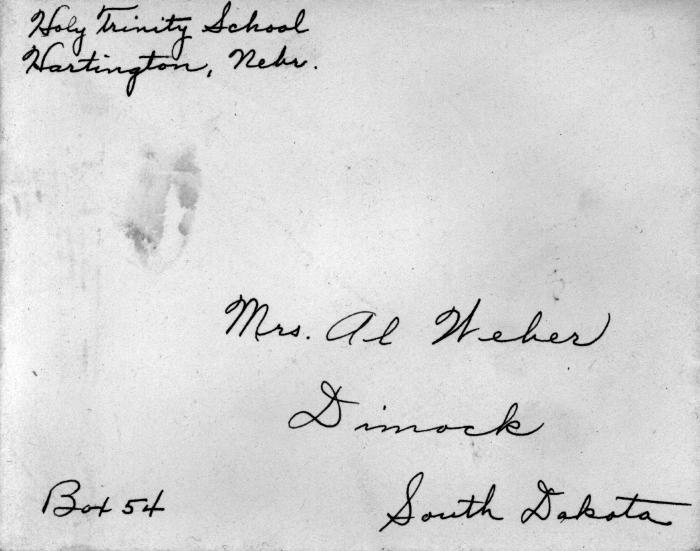 Holy Trinity School
Hartington, Nebr.
Mrs. Al Weber
Dimock
Box 54
South Dakota